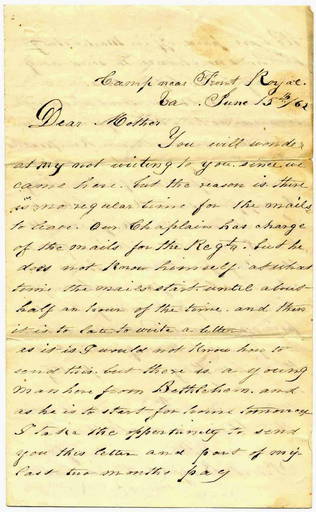 Camp near Front Royal
Va. June 15th/62
Dear Mother
You will wonder
at my not writing to you since we
came here. but the reason is there
is no regular time for the mails
to leave. Our Chaplain has charge
of the mails for the Regt. but he
does not know himself at what
time the mails start until about
half an hour of the time. and then
it is to late to write a letter
as it is I would not know how to
send this. but there is a young
man here from Bethlehem. and
as he is to start for home tomorrow
I take the opportunity to send
you this letter and part of my
last two months pay